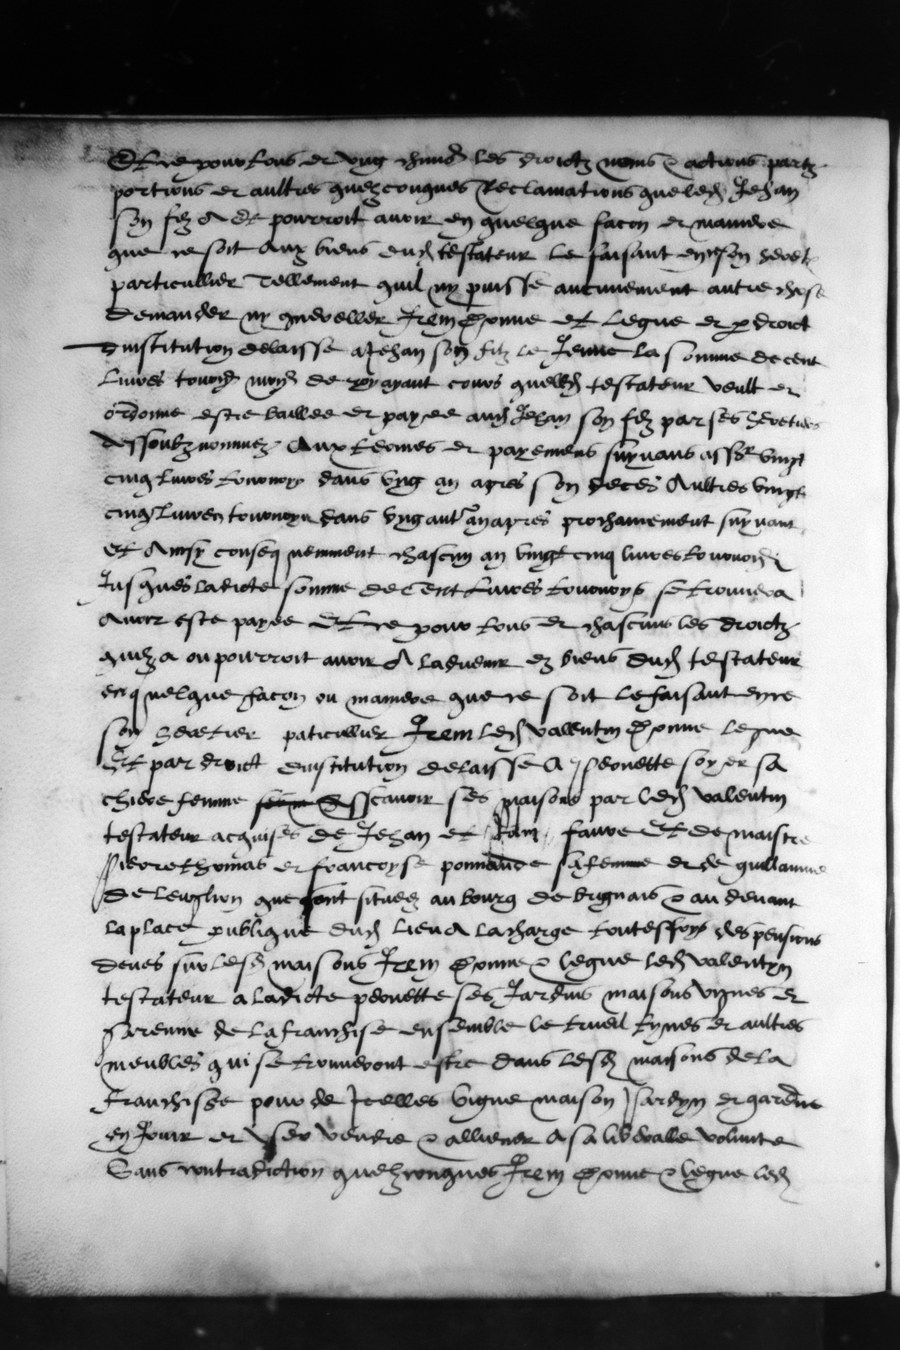 Et ce pour tous et ung chascun les droictz noms & actions partz
portions et aultres quelzconques Reclamations que led Jehan
son filz a et pourroit avoir en quelque facon et maniere
que ce soit aux biens dud testateur le faisant en son herit
particullier Tellement quil ny puisse aucunement autre chose
demander ny quereller Item donne et legue et p droict
dinstitution delaisse a Jehan son filz le Jeune la somme de cent
livres tournoys de roy ayant cours que led testateur veult et
ordonne estre baillee et payee aud Jehan son filz par ses heretiers
dessoubz nommez Aux termes et payemens suyvans assr vingt
cinq livres tournoys dans ung an apres son deces Aultres vingt
cinq livres tournoys dans ung aut an apres prochainement suyvant
Et Ainsy conseq uemment chascun an vingt cinq livres tournoys
Jusques ladicte somme de Cent livres tournoys se trouvera
Avoir este payee Et ce pour tous et chascuns les droictz
quilz a ou pourroit avoir A ladvenir ez biens dud testateur
en quelque facon ou maniere que ce soit le faisant en ce
son heretier paticullier Item led Vallentin donne legue
Et par droict dinstitution delaisse A peonette soyer sa
chiere femme Asscavoir ses maisons par led Valentin
testateur acquises de Jehan et faure Et de maistre
Pierre thomas et francoyse sa femme et de guillaume
de que sont situez au bourg de brignais & au devant
la place publique dud lieu A la charge touteffoys des pensions
deues sur lesd maisons Item donne & legue led Valentin
testateur a ladicte peonette ses Jardins maisons vignes et
garenne de la franchise ensemble le trueil tynes et aultres
meubles qui se trouveront estre dans lesd maisons de la
franchisze pour de Icelles vigne maison Jardyn et garenne
en Jouir et user vendre & alliener a sa liberalle volunte
Sans contradiction quelzconques Item donne & legue led